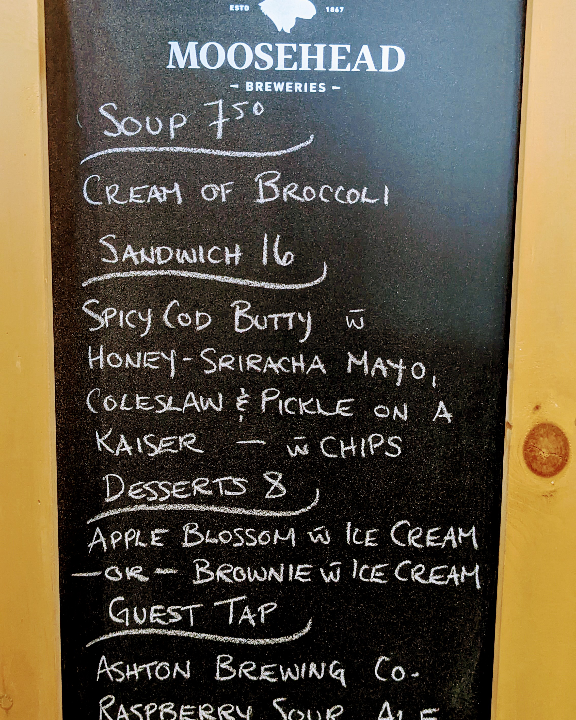 ESTD 1867
MOOSEHEAD
- BREWERIES -
SOUP 7.50
CREAM OF BROCCOLI
SANDWICH 16
SPICY COD BUTTY w̄
HONEY-SRIRACHA MAYO,
COLESLAW & PICKLE ON A
KAISER — w̄ CHIPS
DESSERTS 8
APPLE BLOSSOM w̄ ICE CREAM
—OR— BROWNIE w̄ ICE CREAM
GUEST TAP
ASHTON BREWING CO.
RASPBERRY SOUR ALE